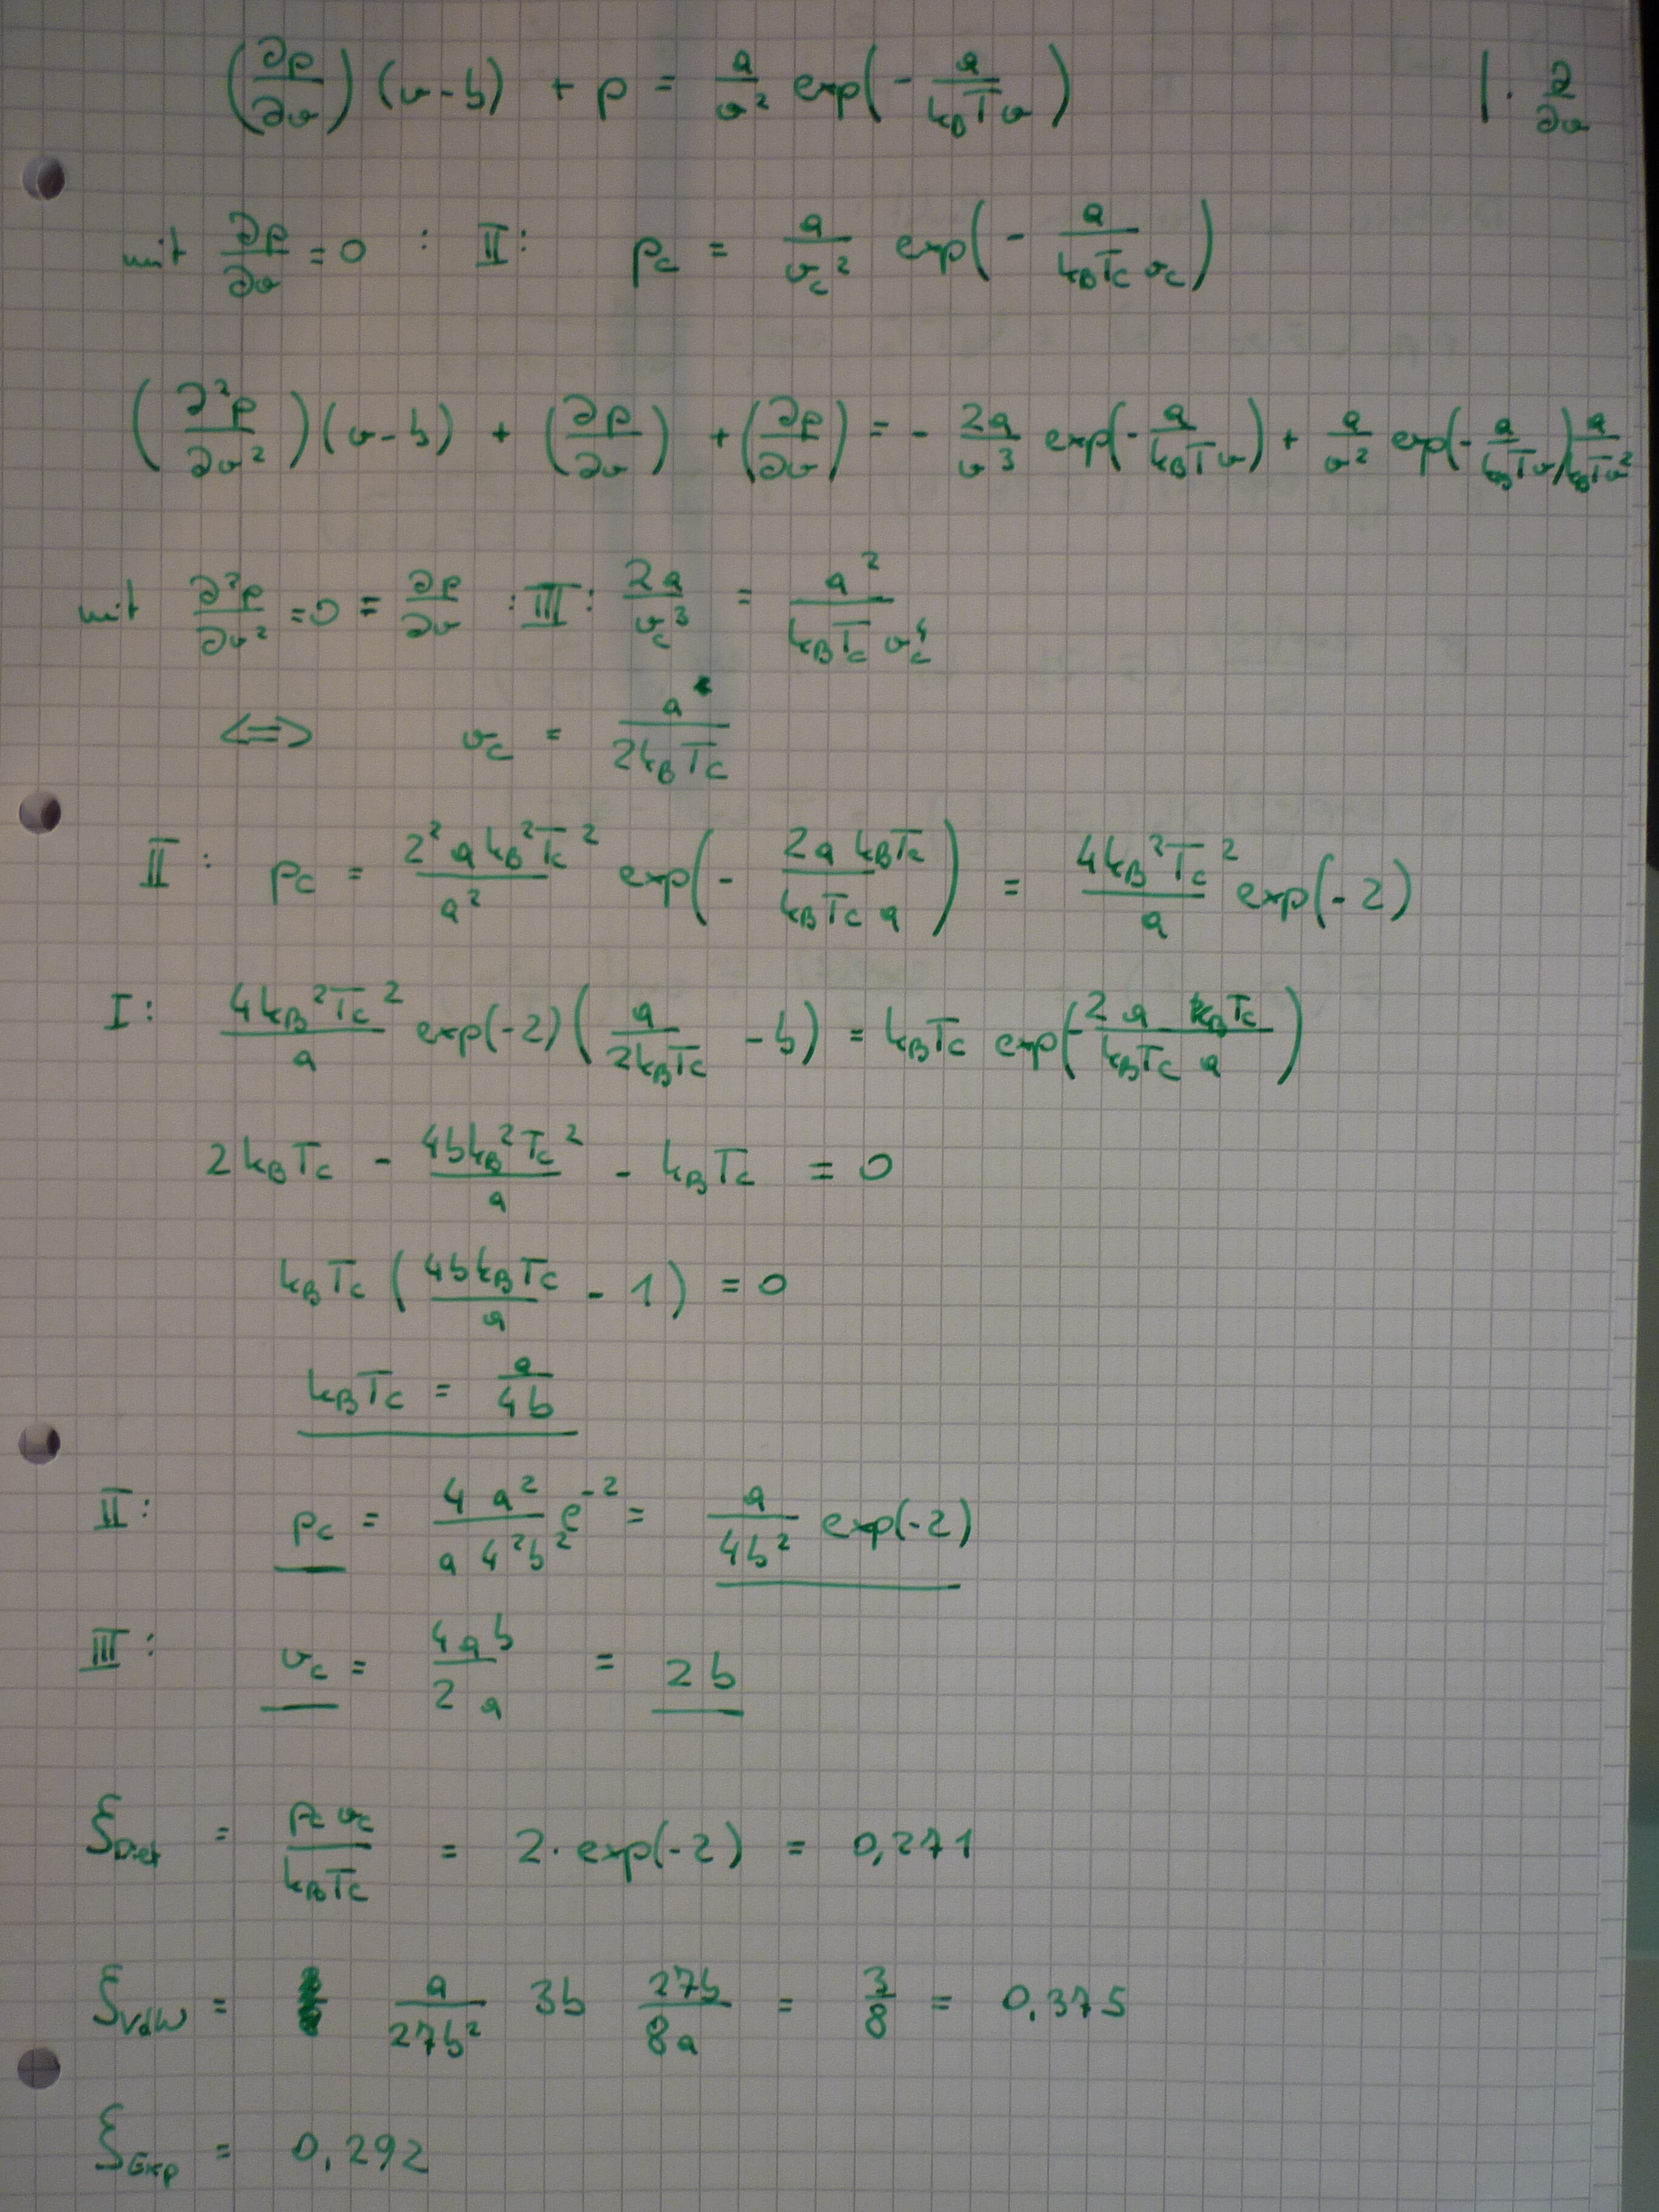 (∂p/∂v) (v-b) + p = a/v² exp(- a/(k_B T v)) | · ∂/∂v
mit ∂p/∂v = 0 : II: p_c = a/v_c² exp(- a/(k_B T_c v_c))
(∂²p/∂v²)(v-b) + (∂p/∂v) + (∂p/∂v) = - 2a/v³ exp(- a/(k_B T v)) + a/v² exp(- a/(k_B T v)) a/(k_B T v²)
mit ∂²p/∂v² = 0 = ∂p/∂v : III: 2a/v_c³ = a²/(k_B T_c v_c⁴)
<=> v_c = a/(2k_B T_c)
II: p_c = 2² a k_B² T_c²/a² exp(- 2a k_B T_c/(k_B T_c a)) = 4k_B² T_c²/a exp(-2)
I: 4k_B² T_c²/a exp(-2) (a/(2k_B T_c) - b) = k_B T_c exp(- 2 a k_B T_c/(k_B T_c a))
2 k_B T_c - 4b k_B² T_c²/a - k_B T_c = 0
k_B T_c (4b k_B T_c/a - 1) = 0
k_B T_c = a/4b
II: p_c = 4 a²/(a 4² b²) e⁻² = a/4b² exp(-2)
III: v_c = 4ab/2a = 2b
ξ_Diet = p_c v_c/(k_B T_c) = 2 · exp(-2) = 0,271
ξ_VdW = a/27b² 3b 27b/8a = 3/8 = 0,375
ξ_Exp = 0,292